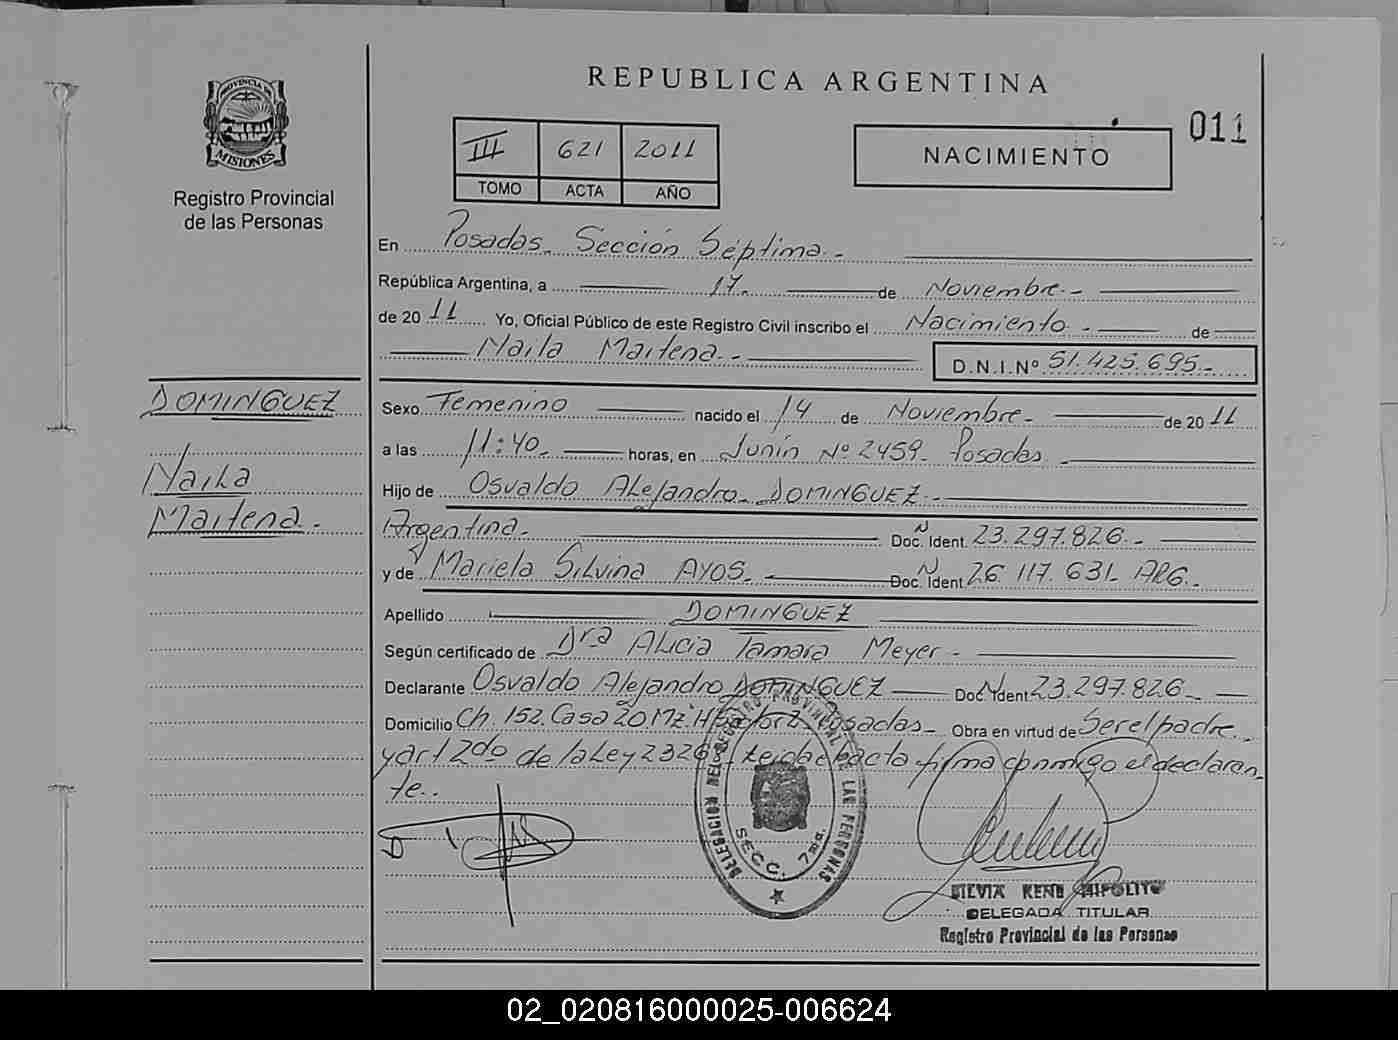 REPUBLICA ARGENTINA
PROVINCIA DE
MISIONES
Registro Provincial
de las Personas
III 621 2011
TOMO ACTA AÑO
NACIMIENTO
011
En Posadas. Sección Séptima.-
República Argentina, a 17. de Noviembre.-
de 20 11 Yo, Oficial Público de este Registro Civil inscribo el Nacimiento.- de
Naila Maitena.- D.N.I.Nº 51.425.695.-
DOMINGUEZ
Naila
Maitena.-
Sexo Femenino nacido el 14 de Noviembre.- de 20 11
a las 11:40. horas, en Junín Nº 2459. Posadas.
Hijo de Osvaldo Alejandro DOMINGUEZ.-
Argentina.- Doc. Ident. 23.297.826.-
y de Mariela Silvina AYOS.- Doc. Ident 26.117.631. ARG.-
Apellido DOMINGUEZ
Según certificado de Dra Alicia Tamara Meyer.-
Declarante Osvaldo Alejandro DOMINGUEZ Doc. Ident 23.297.826.-
Domicilio Ch. 152. Casa 20. Mz. H Posadas.- Obra en virtud de Ser el padre
y art 2do de la Ley 2326.- Leida el acta firma conmigo el declaran
te.-
DELEGACION DEL REGISTRO PROVINCIAL DE LAS PERSONAS
SECC. 7ma.
SILVIA RENE HIPOLITO
DELEGADA TITULAR
Registro Provincial de las Personas
02_020816000025-006624